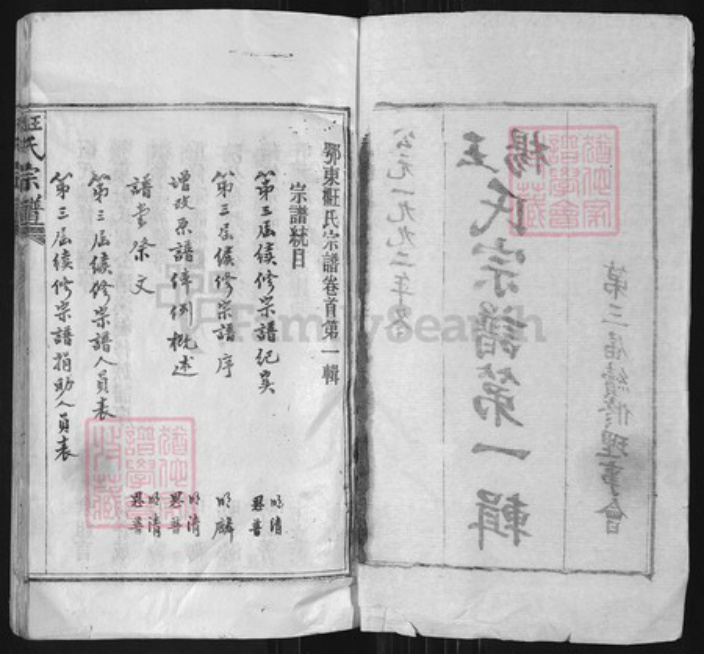 楊王氏宗譜第一輯
第三届續修理事會
公元一九九二年冬
鄂東汪氏宗譜卷首第一輯
宗譜統目
第三届續修宗譜紀实 明清 思普
第三届續修宗譜序 明麟
增改原譜体例概述 明清 思普
譜堂祭文 明清 思普
第三届續修宗譜人員表
第三届續修宗譜捐助人員表
氏宗譜
FamilySearch